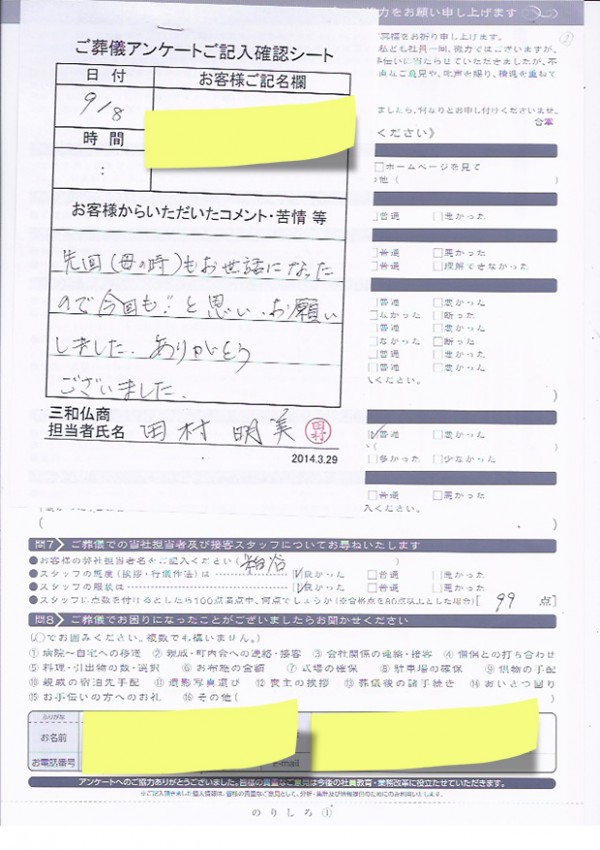 力をお願い申し上げます
冥福をお祈り申し上げます。
私ども社員一同、微力ではございますが、
ましたら、何なりとお申し付けくださいませ。
合掌
ください》
ご葬儀アンケートご記入確認シート
日付
お客様ご記名欄
9/8
時間
:
お客様からいただいたコメント・苦情 等
先回(母の時)もお世話になった
ので今回も!!と思い、お願い
しました。ありがとう
ございました。
三和仏商
担当者氏名 田村明美 田村
2014.3.29
□ホームページを見て
の他(
□普通 □悪かった
□普通 □悪かった
□普通 □理解できなかった
□普通 □悪かった
□断った
□普通 □悪かった
□断った
□普通 □悪かった
□普通 □悪かった
入ください。
)
☑普通 □悪かった
□多かった □少なかった
□普通 □悪かった
入ください。
( )
問7 ご葬儀での当社担当者及び接客スタッフについてお尋ねいたします
●お客様の弊社担当者名をご記入ください( 粕谷 )
●スタッフの態度(挨拶・行儀作法)は ☑良かった □普通 □悪かった
●スタッフの服装は ☑良かった □普通 □悪かった
●スタッフに点数を付けるとしたら100点満点中、何点でしょうか(※合格点を80点以上とした場合)[ 99 点]
問8 ご葬儀でお困りになったことがございましたらお聞かせください
(○でお囲みください。複数でも構いません。)
①病院~自宅への移送 ②親戚・町内会への連絡・接客 ③会社関係の連絡・接客 ④僧侶との打ち合わせ
⑤料理・引出物の数・選択 ⑥お布施の金額 ⑦式場の確保 ⑧駐車場の確保 ⑨供物の手配
⑩親戚の宿泊先手配 ⑪遺影写真選び ⑫喪主の挨拶 ⑬葬儀後の諸手続き ⑭おいとつ回り
⑮お手伝いの方へのお礼 ⑯その他( )
ふりがな
お名前
お電話番号
e-mail
アンケートへのご協力ありがとうございました。皆様の貴重なご意見は今後の社員教育・業務改革に役立たせていただきます。
のりしろ①